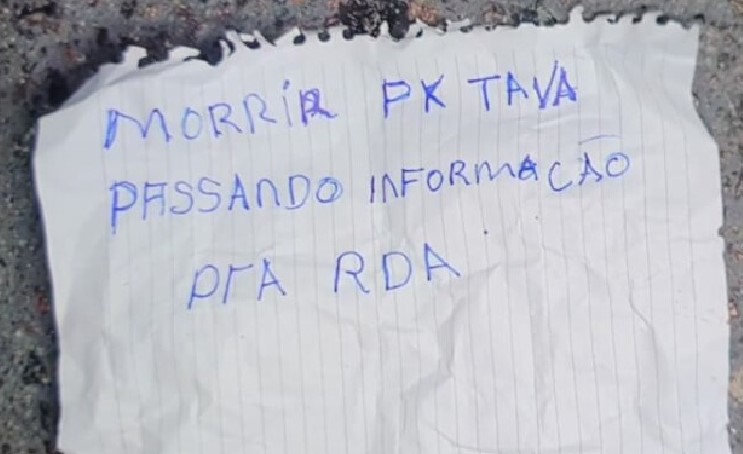 MORRIR PK TAVA
PASSANDO INFORMAÇÃO
PrA RDA